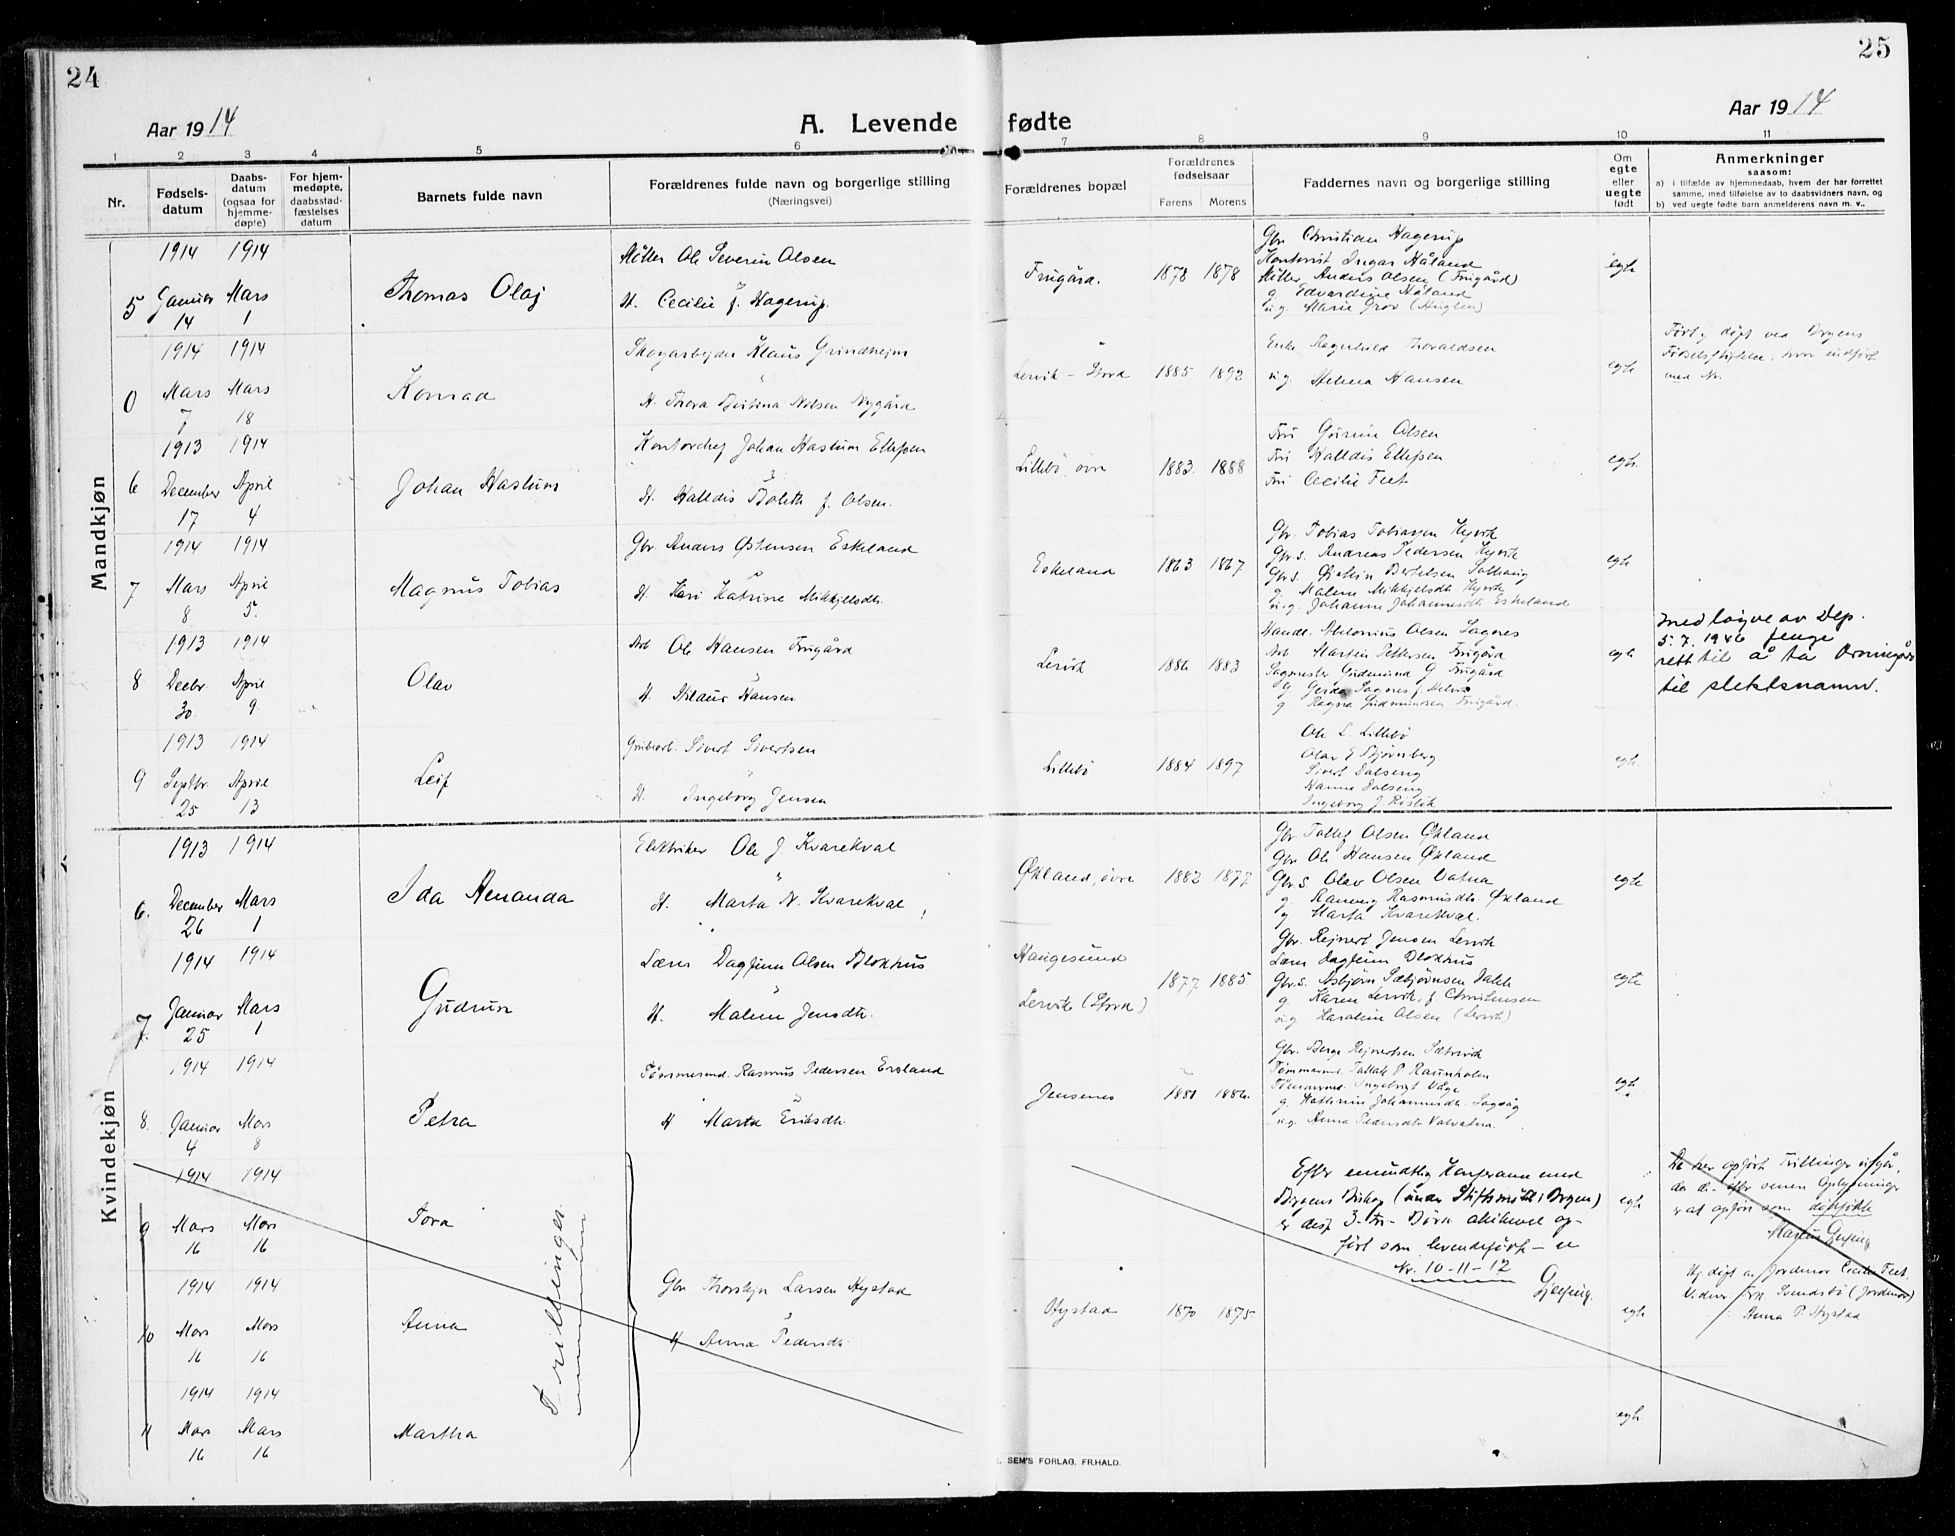 24
25
Aar 1914
A. Levende fødte
Aar 1914
1 2 3 4 5 6 7 8 9 10 11
Nr.
Fødsels-
datum
Daabs-
datum
(ogsaa for
hjemme-
døpte)
For hjem-
medøpte,
daabsstad-
fæstelses
datum
Barnets fulde navn
Forældrenes fulde navn og borgerlige stilling
(Næringsvei)
Forældrenes bopæl
Forældrenes
fødselsaar
Farens Morens
Faddernes navn og borgerlige stilling
Om
egte
eller
uegte
født
Anmerkninger
saasom:
a) i tilfælde av hjemmedaab, hvem der har forrettet
samme, med tilføielse av to daabsvidners navn, og
b) ved uegte fødte barn anmelderens navn m. v..
Mandkjøn
5
1914 1914
Januar Mars
14 1
Thomas Olaf
Ole Severin Olsen
H. Cecilie f. Hagerup.
Frugård.
1878 1878
Gbr Christian Hagerup
Kontorist Ingar Håland
Anders Olsen (Frugård)
g Edvardine Håland
u.g. Marie Grov (Huglen)
egte
0
1914 1914
Mars Mars
7 18
Konrad
Skogarbejder Klaus Grindheim
H. Thora Bertina Nilsen Nygård
Lervik - Stord
1885 1892
Enke Ragnhild Thoraldsen
u.g. Helena Hansen
egte
Født og døpt ved Bergens
Fødselsstiftelse, hvor indført
med Nr.
6
1913 1914
December April
17 4
Johan Haslum
Kontorchef Johan Haslum Ellefsen
H. Halldis Bolette f. Olsen.
Lillebø, øvre
1883 1888
Fru Olsen
Fru Halldis Ellefsen
Fru Cecilie Feet
egte
7
1914 1914
Mars April
8 5.
Magnus Tobias
Gbr Anders Østensen Eskeland
H. Kari Katrine Mikkjelsdtr.
Eskeland
1863 1867
Gbr. Tobias Tobiassen
Gbr.s. Andreas Pedersen
Gbr.s. Bertelsen
g Malene Mikkjelsdtr
u.g. Johanne Johannesdtr Eskeland
egte
8
1913 1914
Decbr April
30. 9.
Olav
Arb Ole Hansen Frugård
H. Hansen
Lervik
1886 1883
Handl. Olsen Sagnes
Arb Martin Pettersen Frugård
Sagmester Gudmund G Frugård
g Gerda Sagnes f.
g Ragna Gudmundsen Frugård.
egte
med løyve av Dep.
5.7.1946 fenge
rett til å ta
til slektsnamn.
9
1913 1914
Septbr. April
25 13
Leif
Grubearb. Sivert Sivertsen
H. Ingeborg Jensen
Lillebø
1884 1897
Ole L. Lillebø
Olav E Stjørnberg
Sivert Dalseng
Hanna Dalseng
Ingeborg J.
egte
Kvindekjøn
6.
1913 1914
December Mars
26 1
Ida Amanda
Elektriker Ole J Kvarekval
H. Marta N. Kvarekval
Økland, øvre
1882 1877
Gbr Tollef Olsen Økland
Gbr Ole Hansen Økland
Gbr.s. Olav Olsen Vatna
g. Rasmusdtr Økland
g Marta Kvarekval.
egte
7.
1914 1914
Januar Mars
25 1
Gudrun
Lærer Dagfinn Olsen Blokhus
H. Malene Jensdtr.
Haugesund
Lervik (Stord)
1877 1885
Gbr. Rejnert Jensen Lervik
Lærer Dagfinn Blokhus
Gbr.s. Asbjørn Sæbjørnsen
g. Karen Lervik, f. Christensen
u.g Karoline Olsen (Lervik)
egte
8.
1914 1914
Januar Mars
4 8
Petra
Tømmermd. Rasmus Pedersen Ersland
H Marta Eriksdtr.
Jensenes
1881 1886.
Gbr. Berge Rejnertsen
Tømmermd. P
Tømmermd. Ingebrigt Våge
g. Kathrine Johannesdtr.
u.g. Anna Pedersdtr Valvatna.
egte
9
1914 1914
Mars Mars
16 16
Tora
Trillinger
Efter mundtlig Konferanse med
Bergens Biskop (under Stiftsmøte i Bergen)
er disse 3 Børn allikevel op-
ført som levendefødt - se
Nr. 10-11-12
Gjerping.
egte
De her opført Trillinger utgår,
da de efter senere Oplysninger
er at opføre som dødfødte
10
1914 1914
Mars Mars
16 16
Anna
Gbr Thorstejn Larsen Hystad
H Anna Pedersdtr.
Hystad
1870 1875
egte
Hj. døpt av Jordmor Cecilie Feet.
Vidner: Frk Svendsbø (Jordmor)
Anna P. Hystad.
11
1914 1914
Mars Mars
16 16
Martha
egte
SEM'S FORLAG. FR.HALD.